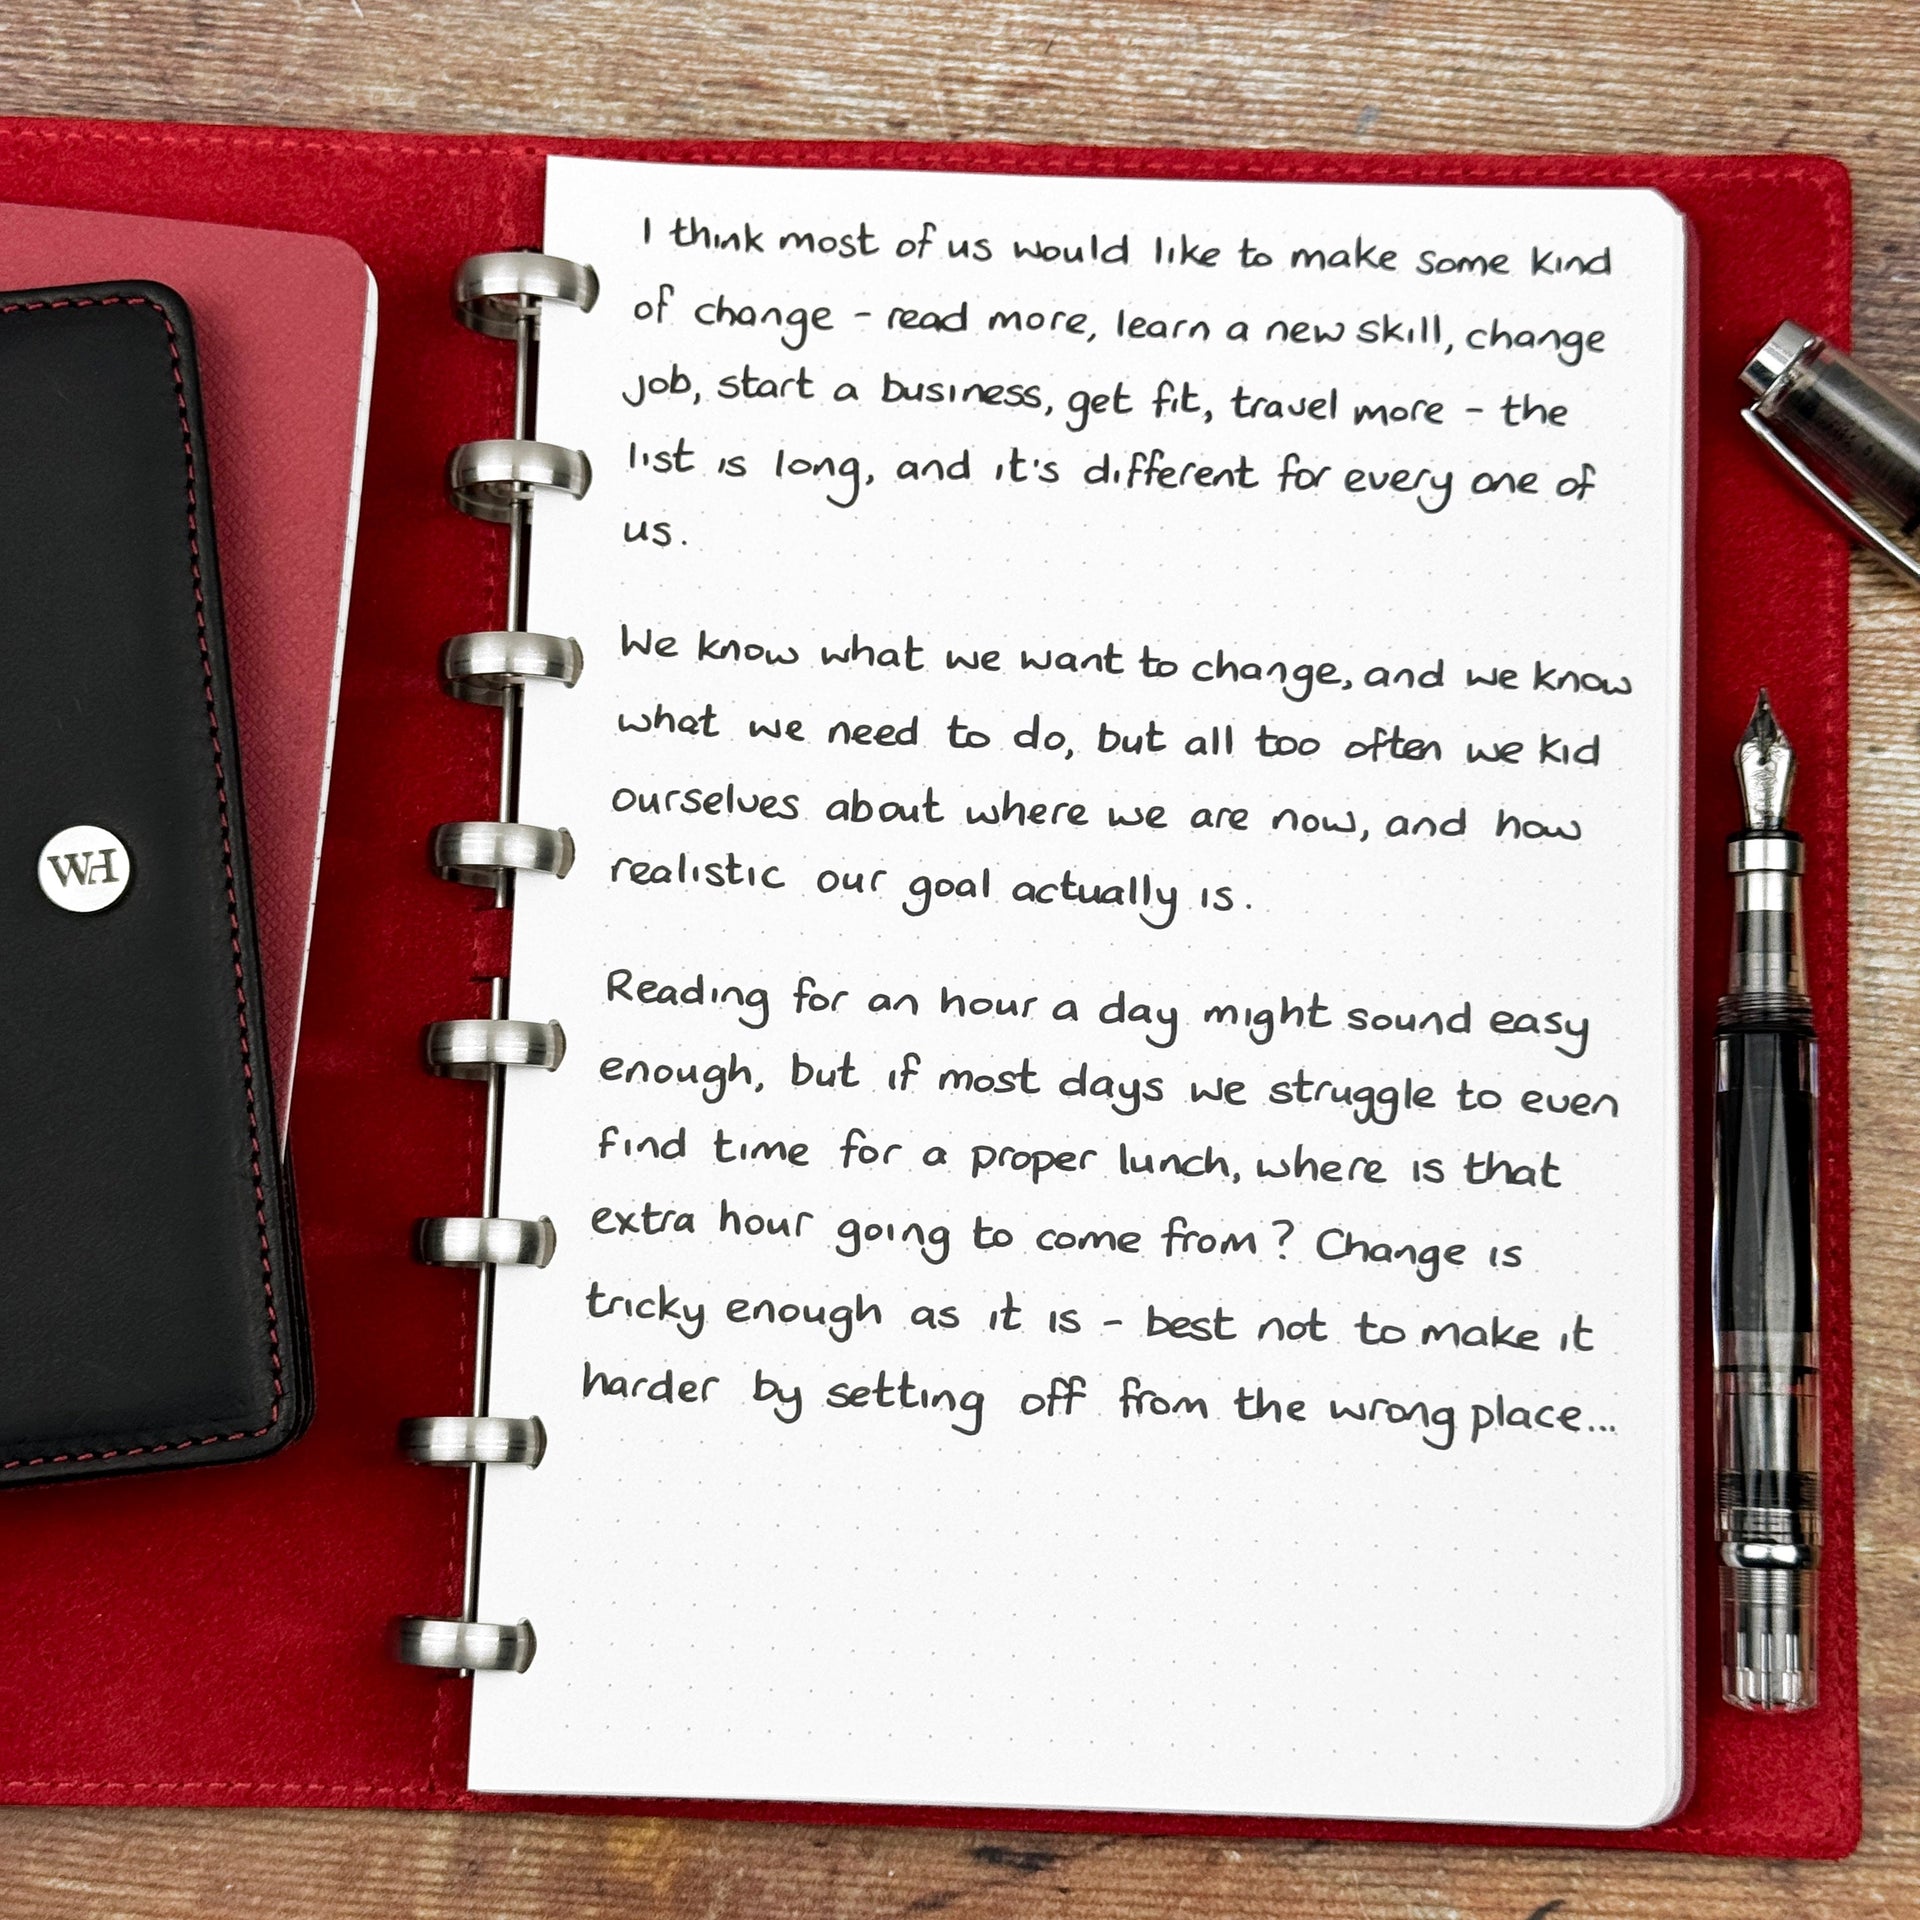 I think most of us would like to make some kind
of change - read more, learn a new skill, change
job, start a business, get fit, travel more - the
list is long, and it's different for every one of
us.
We know what we want to change, and we know
what we need to do, but all too often we kid
ourselves about where we are now, and how
realistic our goal actually is.
Reading for an hour a day might sound easy
enough, but if most days we struggle to even
find time for a proper lunch, where is that
extra hour going to come from? Change is
tricky enough as it is - best not to make it
harder by setting off from the wrong place...
WH